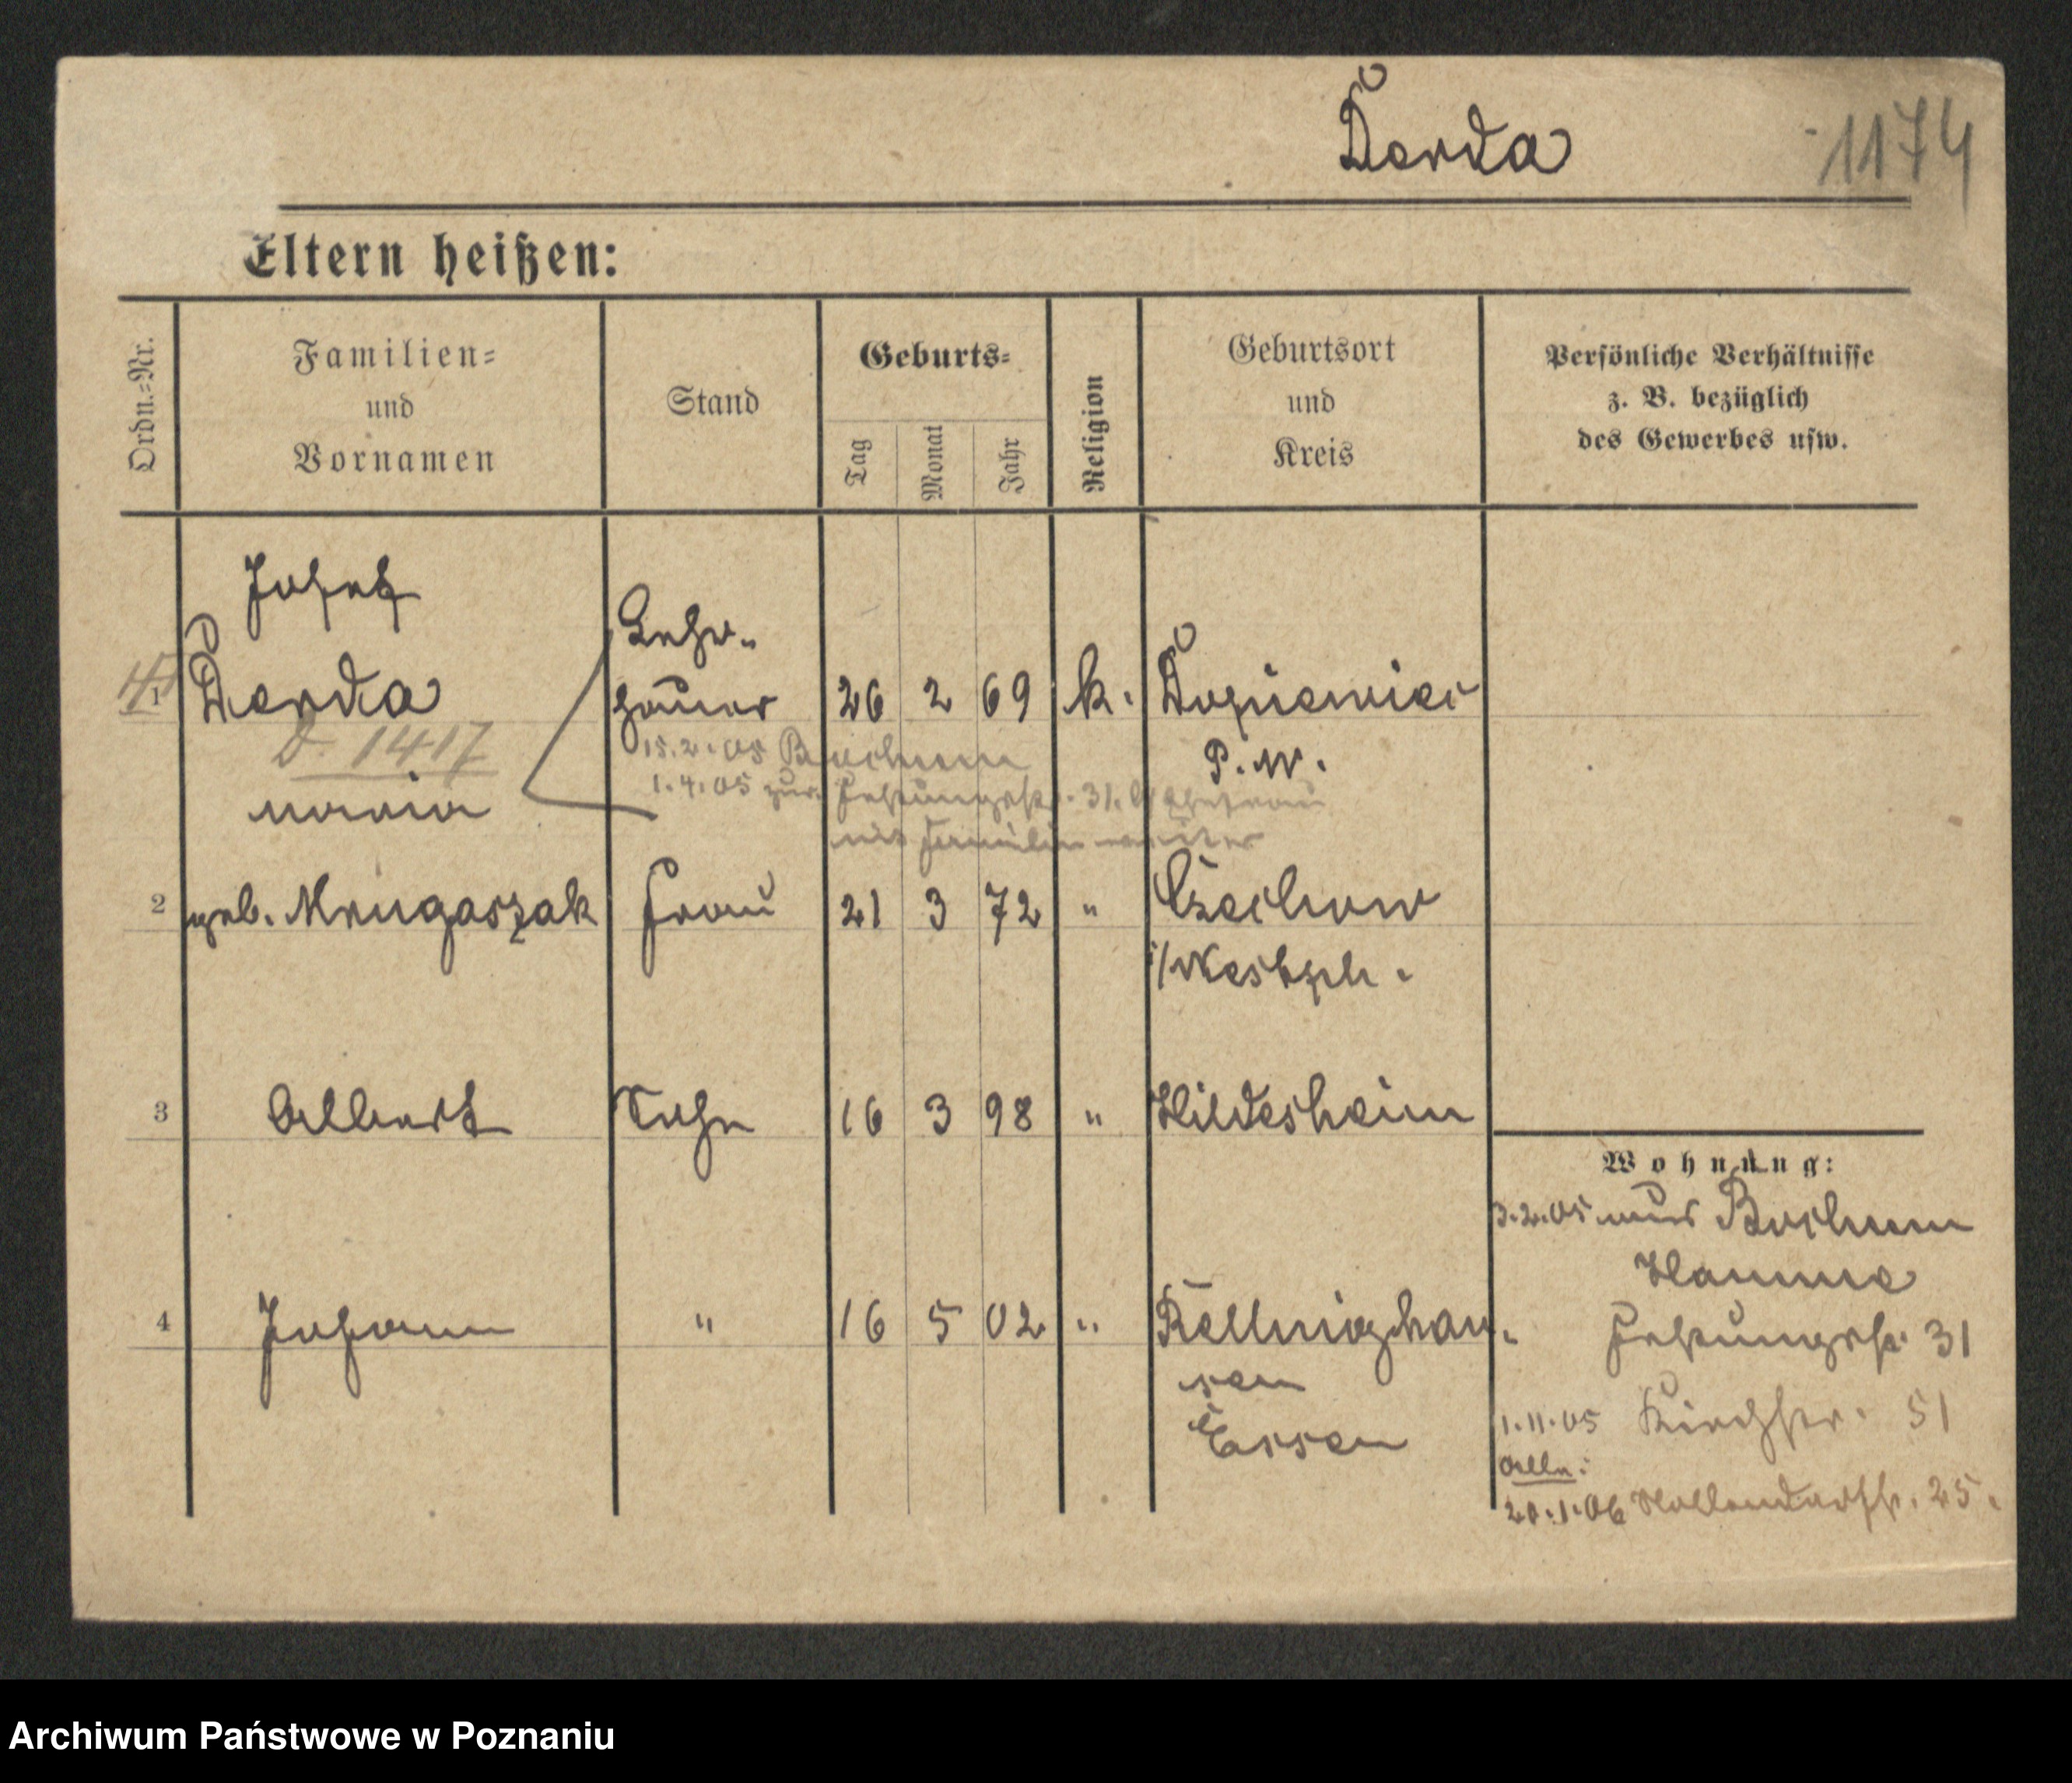 Derda
1174
Eltern heißen:
Ordn.-Nr.
Familien-
und
Vornamen
Stand
Geburts-
Tag
Monat
Jahr
Religion
Geburtsort
und
Kreis
Persönliche Verhältnisse
z. B. bezüglich
des Gewerbes usw.
Josef
1 Derda
Lehr-
hauer
26 2 69 k.
P. W.
D. 1417
15.2.05 Bochum
1.4.05 zur. Festungsstr. 31.
mit Familie weiter
Maria
2 geb. Mrugaszak Frau 21 3 72 " Czechow
i/Westph.
3 Albert Sohn 16 3 98 " Hildesheim
4 Johann " 16 5 02 " Rellinghau-
sen
Essen
Wohnung:
3.2.05 aus Bochum
Hamme
Festungsstr. 31
1.11.05 Kirchstr. 51
20.1.06 25.
Archiwum Państwowe w Poznaniu